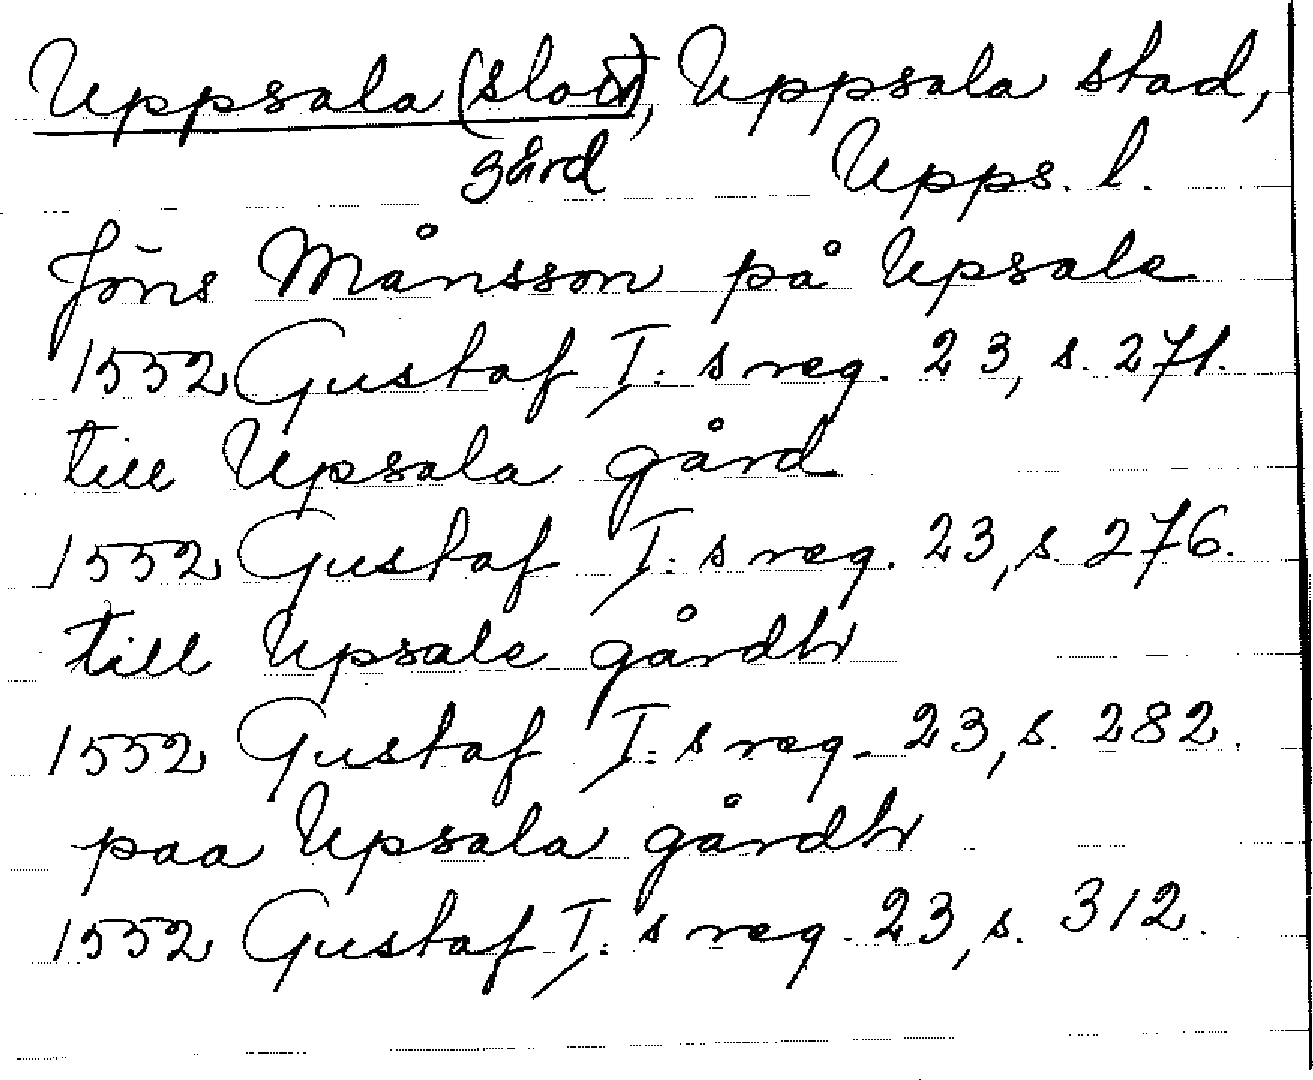 Uppsala (slott), Uppsala stad,
gård Upps. l.
Jöns Månsson på Upsale
1552 Gustaf I:s reg. 23, s. 271.
till Upsala gård
1552 Gustaf I:s reg. 23, s. 276.
till Upsale gårdh
1552 Gustaf I:s reg. 23, s. 282.
paa Upsala gårdh
1552 Gustaf I:s reg. 23, s. 312.